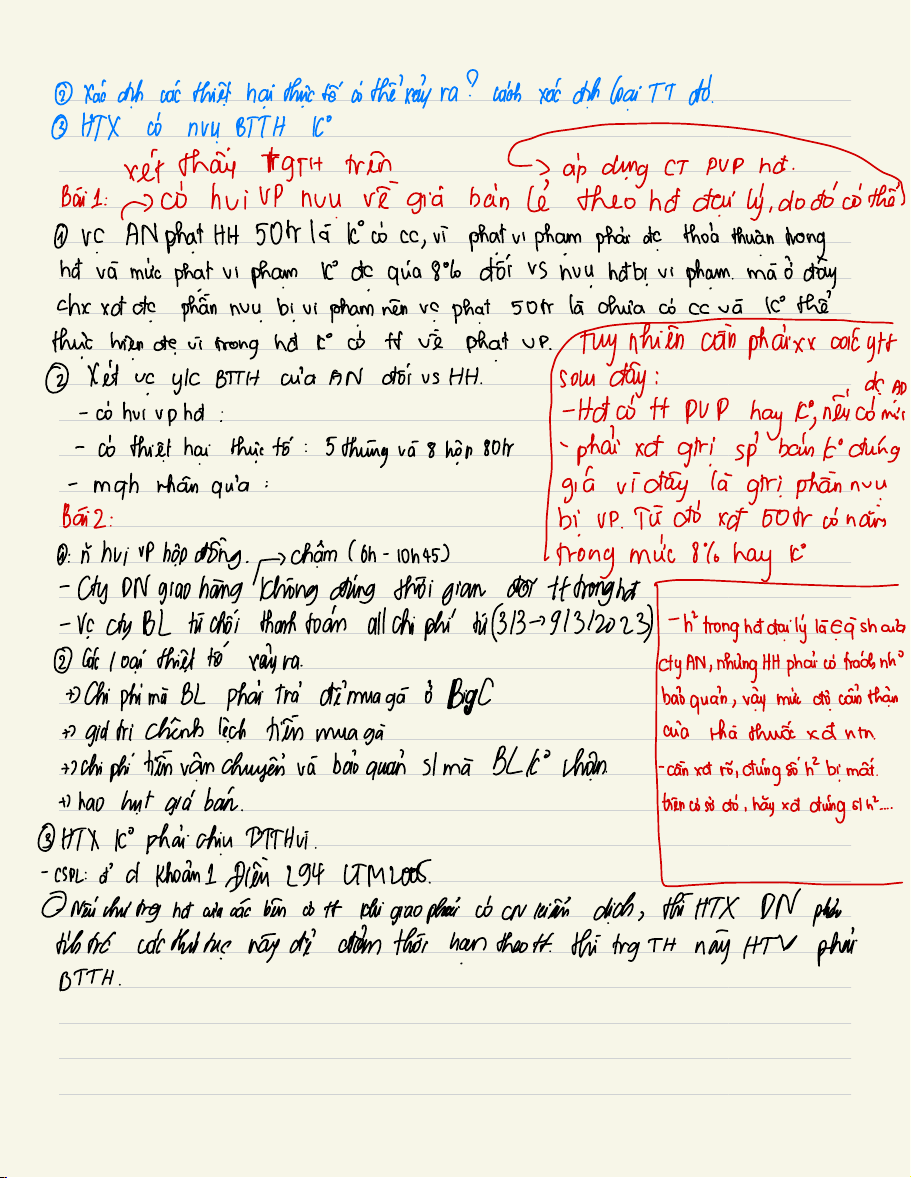 ② Xác định các thiệt hại thực tế có thể xảy ra? cách xác định loại TT đó.
③ HTX có nvụ BTTH k°
xét thấy trg TH trên
→ áp dụng CT PVP hđ.
Bài 1: → có hvi VP nvụ về giá bán lẻ theo hđ đại lý, do đó có thể
① vc AN phạt HH 50tr là k° có cc, vì phạt vi phạm phải đc thoả thuận trong
hđ và mức phạt vi phạm k° đc quá 8% đối vs nvụ hđ bị vi phạm. mà ở đây
chx xđ đc phần nvụ bị vi phạm nên vc phạt 50tr là chưa có cc và k° thể
thực hiện đc vì trong hđ k° có tt về phạt VP.
② Xét vc y/c BTTH của AN đối vs HH.
- có hvi vp hđ :
- có thiệt hại thực tế : 5 thùng và 8 hộp 80tr
- mqh nhân quả :
Tuy nhiên cần phải xx các ytt
sau đây:
- Hđ có tt PVP hay k°, nếu có mới
đc AD
- phải xđ gtrị sp bán k° đúng
giá vì đây là gtrị phần nvụ
bị VP. Từ đó xđ 50tr có nằm
trong mức 8% hay k°
Bài 2:
①: n̆ hvi VP hợp đồng. → chậm (6h - 10h45)
- Cty DN giao hàng không đúng thời gian tt trong hđ
- Vc cty BL từ chối thanh toán all chi phí từ (3/3 → 9/3/2023)
② Các loại thiệt tế xảy ra.
+) Chi phí mà BL phải trả để mua gà ở BigC
+) giá trị chênh lệch tiền mua gà
+) chi phí tiền vận chuyển và bảo quản sl mà BL k° nhận
+) hao hụt giá bán.
③ HTX k° phải chịu BTTH vì.
- CSPL: d khoản 1 Điều 294 LTM 2005.
Nếu như trg hđ của các bên có tt khi giao phải có CN kiểm dịch, thì HTX DN phải
tính trc các thủ tục này để đảm thời hạn theo tt. thì trg TH này HTV phải
BTTH.
- h² trong hđ đại lý là ∈ q sh của
cty AN, nhưng HH phải có trách nh°
bảo quản, vậy mức độ cẩn thận
của nhà thuốc xđ ntn
- cần xđ rõ, đúng số h² bị mất.
trên cơ sở đó, hãy xđ đúng sl h²....